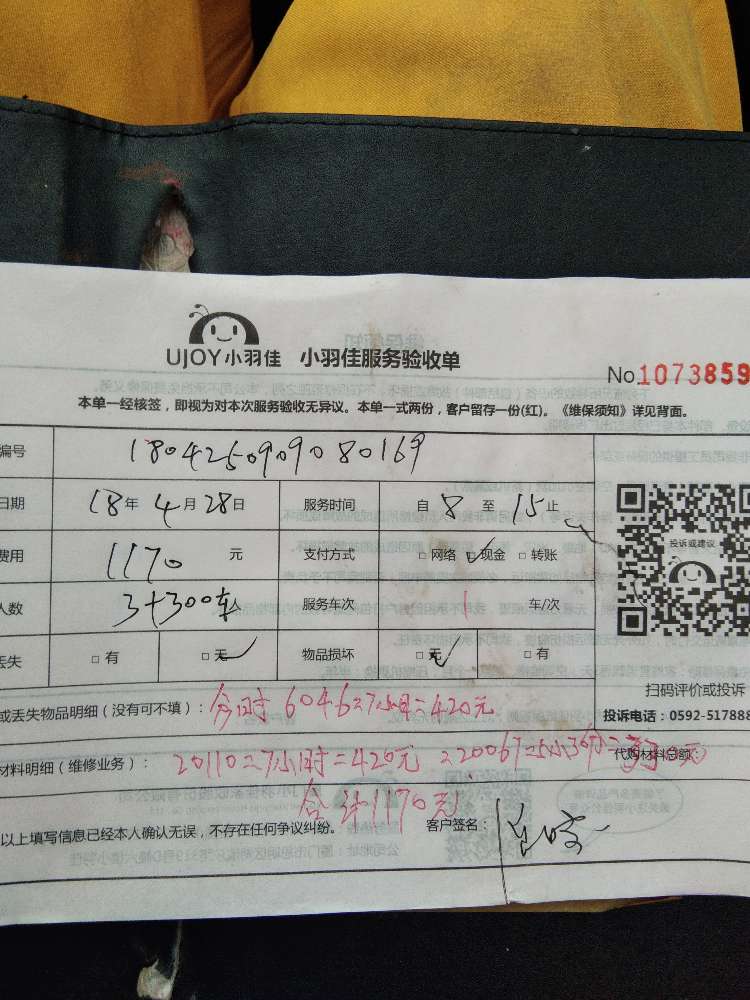 UJOY小羽佳 小羽佳服务验收单
No.1073859
本单一经核签，即视为对本次服务验收无异议。本单一式两份，客户留存一份(红)。《维保须知》详见背面。
编号 180425090980169
日期 18年4月28日 服务时间 自8至15止
费用 1170元 支付方式 □网络 □现金 □转账
人数 3+300车 服务车次 1 车/次
丢失 □有 □无 物品损坏 □无 □有
投诉或建议
扫码评价或投诉
投诉电话：0592-517888
或丢失物品明细（没有可不填）： 6046=7小时=420元
材料明细（维修业务）：20110=7小时=420元 =20067=5小
代购材料总额：
合计1170元
以上填写信息已经本人确认无误，不存在任何争议纠纷。 客户签名：